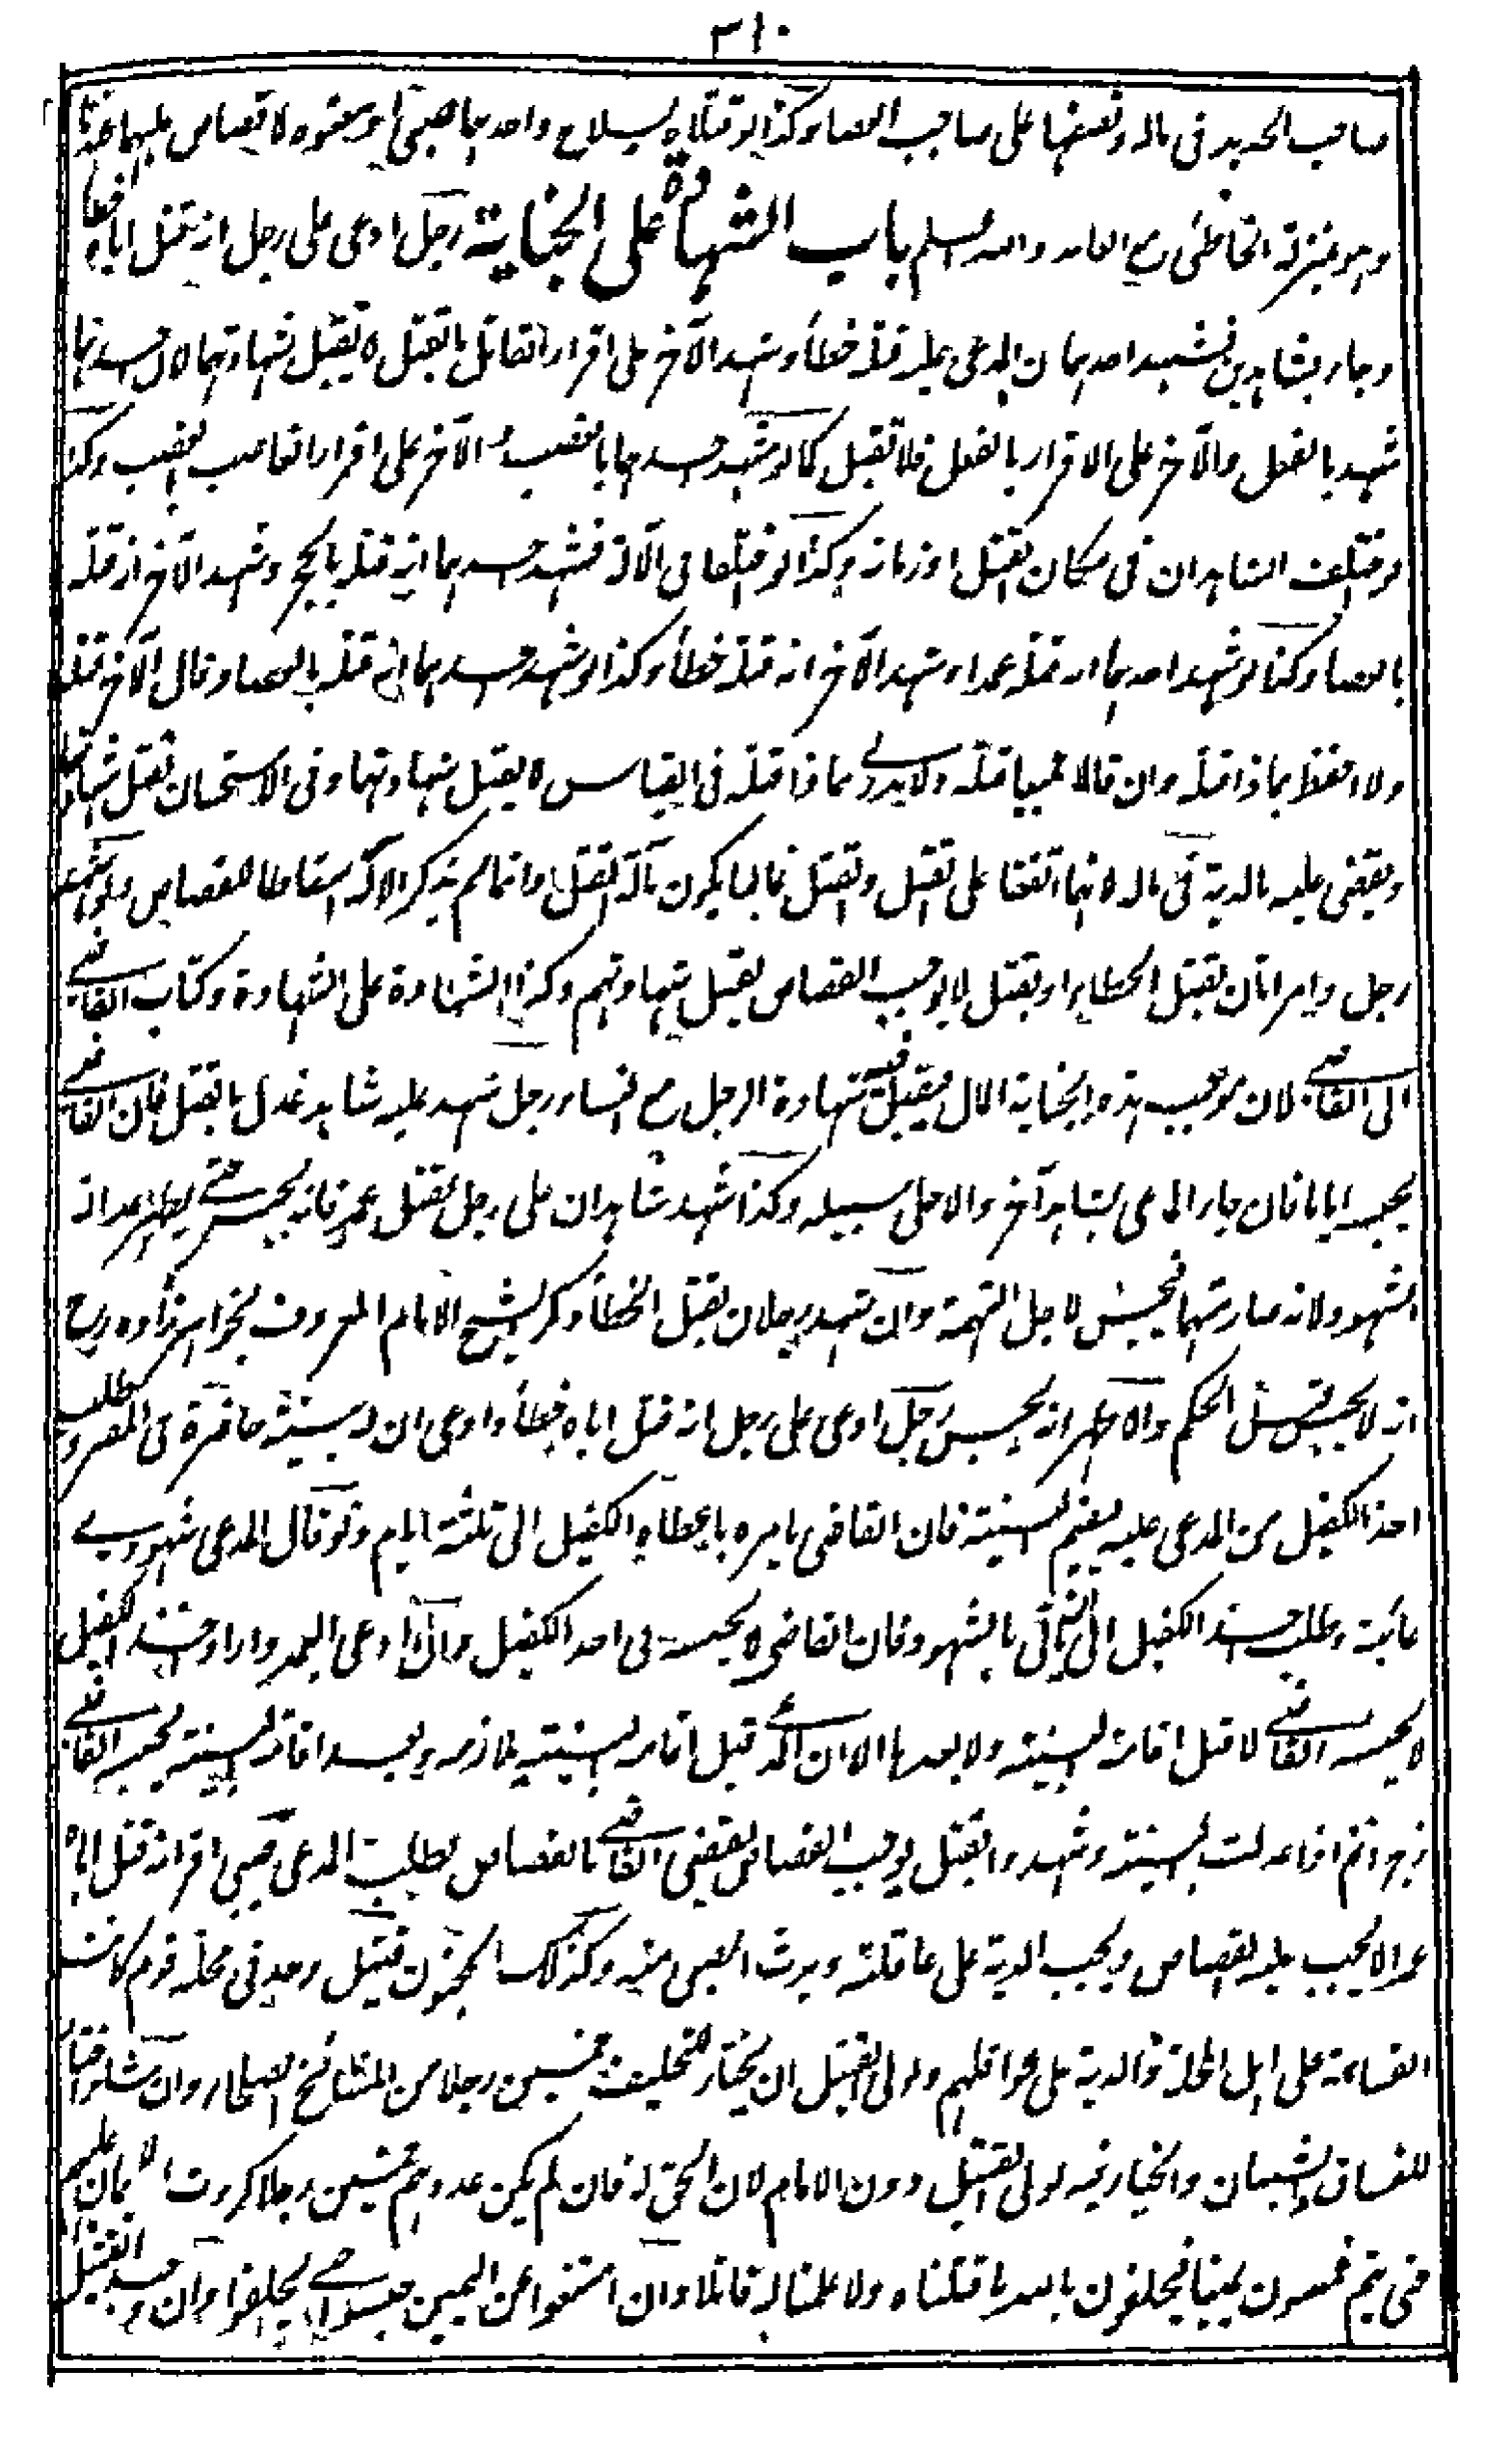 ٣١٠
صاحب الحديد فى ماله ونصفها على صاحب العصا وكذا لو قتلاه بسلاح واحد هما صبى او معتوه لا قصاص عليهما عندنا
وهو بمنزلة الخاطئ مع العامد والله اعلم باب الشهادة على الجناية رجل ادعى على رجل انه قتل اباه خطأ
وجاء بشاهدين فشهد احدهما ان المدعى عليه قتله خطأ وشهد الآخر على اقرار القاتل بالقتل لا تقبل شهادتهما لان احدهما
شهد بالفعل والآخر على الاقرار بالفعل فلا تقبل كما لو شهد احدهما بالغصب والآخر على اقرار الغاصب بالغصب وكذا
لو اختلف الشاهدان فى مكان القتل او زمانه وكذا لو اختلفا فى الآلة فشهد احدهما انه قتله بالحجر وشهد الآخر انه قتله
بالعصا وكذا لو شهد احدهما انه قتله عمدا وشهد الآخر انه قتله خطأ وكذا لو شهد احدهما انه قتله بالعصا وقال الآخر قتله
ولا احفظ بماذا قتله وان قالا جميعا قتله ولا يدرى بماذا قتله فى القياس لا يقبل شهادتهما وفى الاستحسان تقبل شهادتهما
ويقضى عليه بالدية فى ماله لانهما اتفقا على القتل والقتل غالبا يكون بآلة القتل وانما لم يذكر الآلة اسقاطا للقصاص ولو شهد
رجل وامرأتان بقتل الخطاء او بقتل لا يوجب القصاص يقبل شهادتهم وكذا الشهادة على الشهادة وكتاب القاضى
الى القاضى لان موجب هذه الجناية المال فيقبل فيه شهادة الرجل مع النساء رجل شهد عليه شاهد عدل بالقتل فان القاضى
يحبسه اياما فان جاء المدعى بشاهد آخر والا خلى سبيله وكذا شهد شاهدان على رجل بقتل عمد فانه يحبس حتى يظهر عدالة
الشهود ولانه صار متهما فيحبس لاجل التهمة وان شهد رجلان بقتل الخطأ ذكر الشيخ الامام المعروف بخواهرزاده رح
انه لا يحبس قبل الحكم والاظهر انه يحبس رجل ادعى على رجل انه قتل اباه خطأ وادعى ان له بينة حاضرة فى المصر وطلب
اخذ الكفيل من المدعى عليه ليقيم البينة فان القاضى يامره باعطاء الكفيل الى ثلثة ايام ولو قال المدعى شهودى
غائبة وطلب اخذ الكفيل الى ان ياتى بالشهود فان القاضى لا يجيبه فى اخذ الكفيل وان ادعى العمد واراد اخذ الكفيل
لا يجيبه القاضى لا قبل اقامة البينة ولا بعدها الا ان قبل اقامة البينة يلازمه وبعد اقامة البينة يحبسه القاضى
زجرا ثم اذا عدلت البينة وشهدوا بقتل يوجب القصاص يقضى القاضى بالقصاص بطلب المدعى صبى اقر انه قتل اباه
عمدا لا يجب عليه القصاص ويجب الدية على عاقلته ويرث الصبى منه وكذلك المجنون قتيل وجد فى محلة قوم كانت
القسامة على اهل المحلة والدية على عواقلهم ولولى القتيل ان يختار لتحليف خمسين رجلا من المشائخ الصلحاء وان شاء اختار
الفساق والشبان والخيار فيه لولى القتيل دون الامام لان الحق له فان لم يكن عددهم خمسين رجلا كررت الايمان عليهم
حتى يتم خمسون يمينا فيحلفون بالله ما قتلناه ولا علمنا له قاتلا وان امتنعوا عن اليمين حبسوا حتى يحلفوا وان وجد القتيل